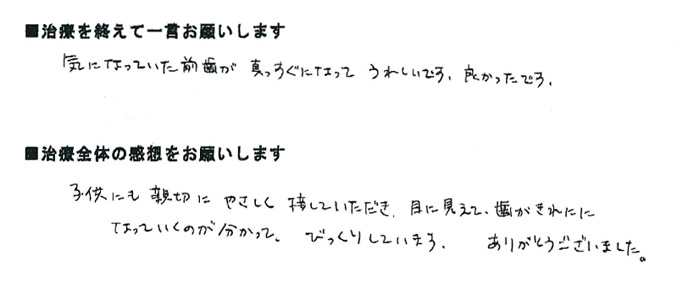 ■治療を終えて一言お願いします
気になっていた前歯が 真っすぐになって うれしいです、良かったです。
■治療全体の感想をお願いします
子供にも 親切に やさしく 接していただき、目に見えて、歯がきれいに
なっていくのが分かって。 びっくりしています。 ありがとうございました。